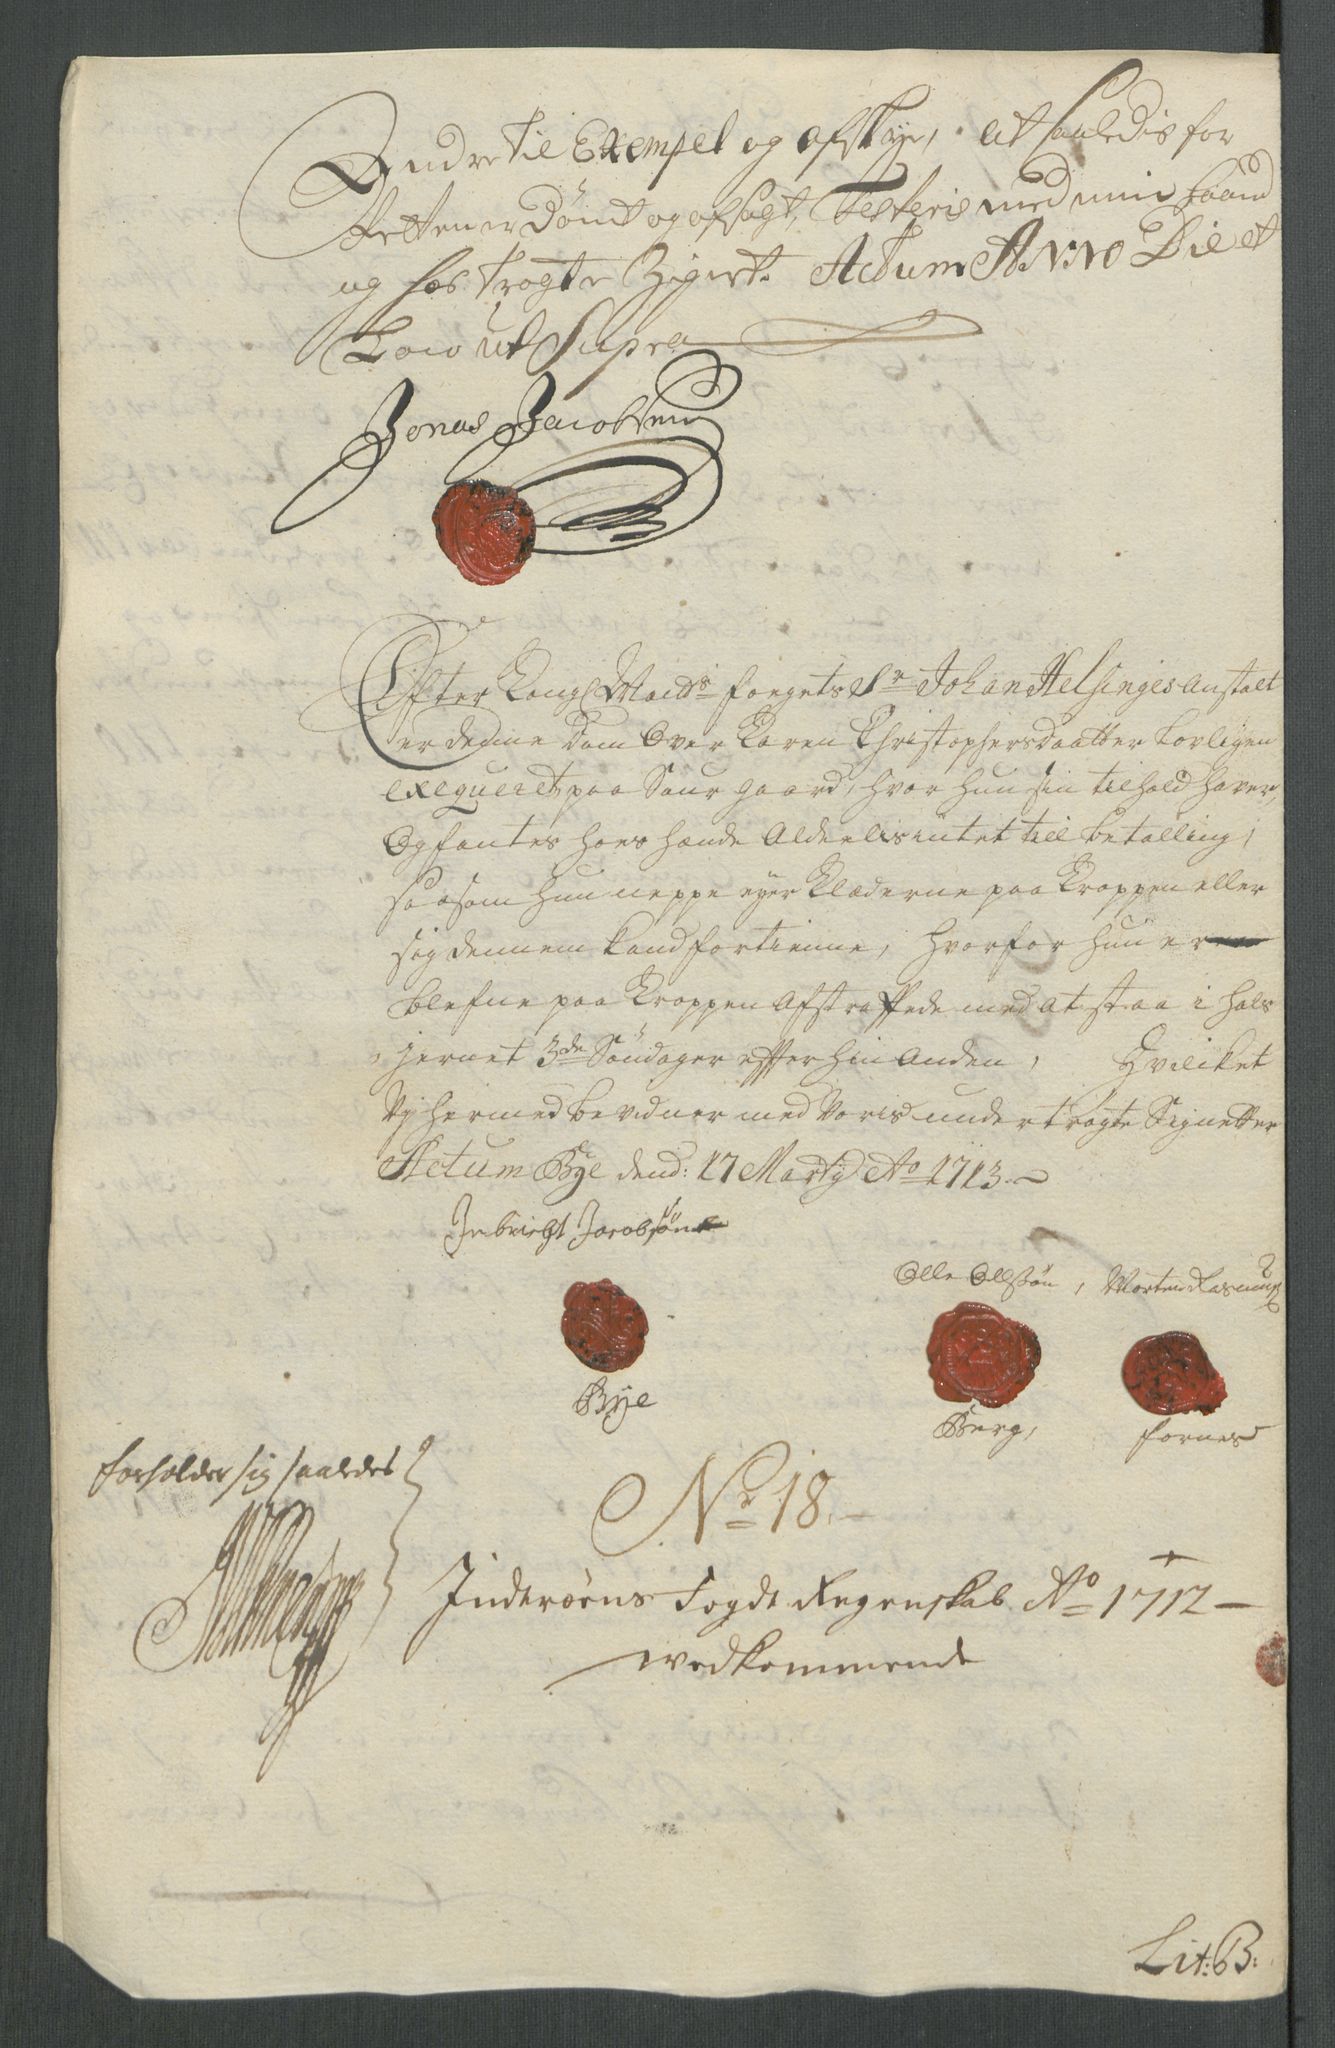 Andre til Exempel og afskye, at saaledis for
Retten er Dømt og afsagt, Testeris med min Haand
og hos trygte Zignet. Actum Anno Die et
Loco ut Supra
Jonas Jacobsen
Efter Kongl Maids foegets Sr Johan Helsinges Anstalt
er denne Dom Over Karen Christophersdaatter Lovligen
exqueret paa Saur gaard, hvor hun sin tilhold haver,
Og fantes hoes hænde Aldeelis intet till betalling,
saasom hun neppe eyer Klæderne paa Kroppen eller
sig dennem kand fortienne, hvorfor hun er
blefne paa Kroppen Afstraffede med at staa i hals
jernet 3de Søndager effter hin anden, Hvilcket
Vy hermed bevidner med Voris undertrögte Signetter
Actum Bye dend: 17 Marty Ao 1713.
Ingbricht Jacobsøn
Olle Ollssøn, Morten Rasmus
Bye
Berg,
Fornes
forholder sig saaledes
No 18.
Inderøens Fogde Regenskab Ao 1712
vedkommende
Lit: B: